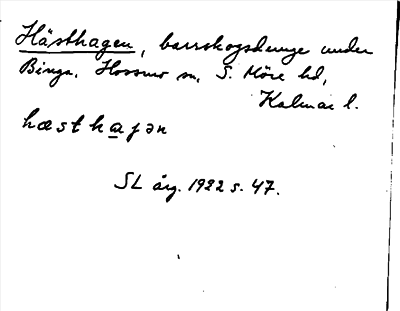 Hästhagen, barrskogsdunge under
Binga, Hossmo sn, S. Möre hd,
Kalmar l.
hæsthaɟən
SL årg. 1922 s. 47.